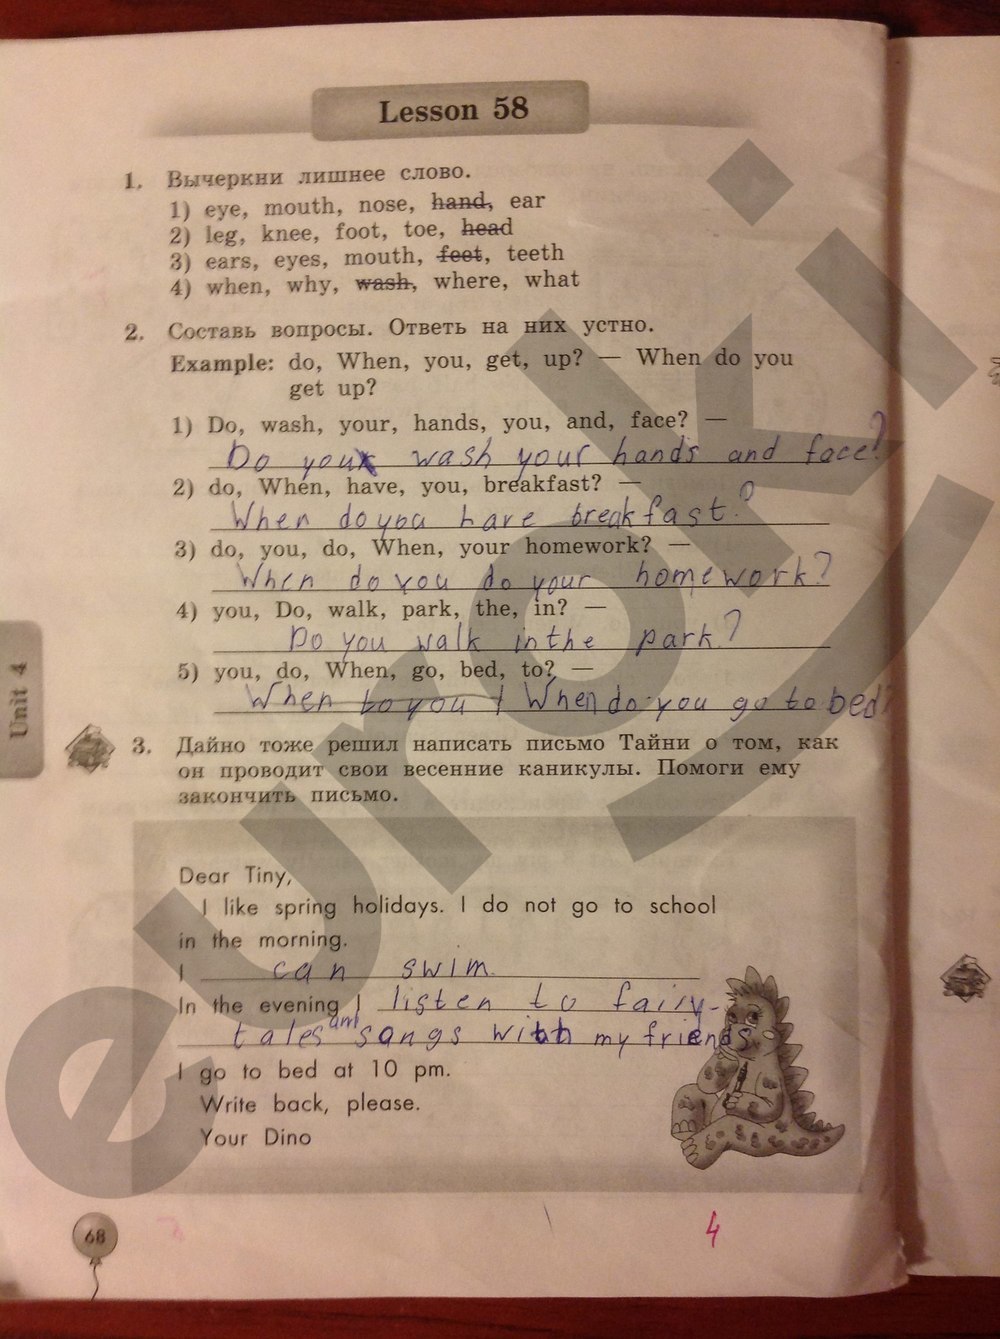 Lesson 58
1. Вычеркни лишнее слово.
1) eye, mouth, nose, hand, ear
2) leg, knee, foot, toe, head
3) ears, eyes, mouth, feet, teeth
4) when, why, wash, where, what
2. Составь вопросы. Ответь на них устно.
Example: do, When, you, get, up? — When do you
get up?
1) Do, wash, your, hands, you, and, face? —
Do you wash your hands and face?
2) do, When, have, you, breakfast? —
When do you have breakfast?
3) do, you, do, When, your homework? —
When do you do your homework?
4) you, Do, walk, park, the, in? —
Do you walk in the park?
5) you, do, When, go, bed, to? —
When to you When do you go to bed?
Unit 4
3. Дайно тоже решил написать письмо Тайни о том, как
он проводит свои весенние каникулы. Помоги ему
закончить письмо.
Dear Tiny,
I like spring holidays. I do not go to school
in the morning.
I can swim.
In the evening I listen to fairy-
tales and songs with my friends.
I go to bed at 10 pm.
Write back, please.
Your Dino
68
4
euroki